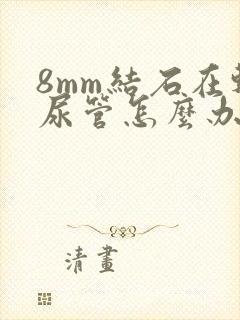 8mm結石在
尿管怎麼办
清畫